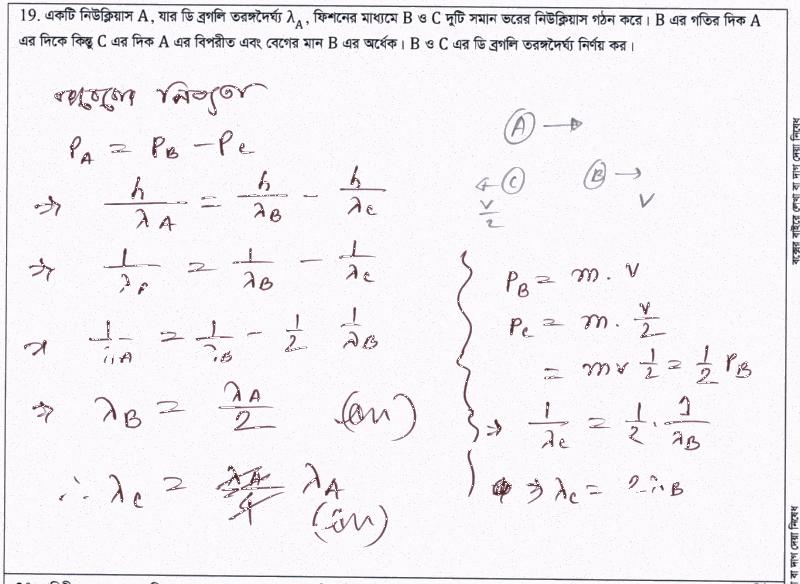 19. একটি নিউক্লিয়াস A, যার ডি ব্রগলি তরঙ্গদৈর্ঘ্য λ_A, ফিশনের মাধ্যমে B ও C দুটি সমান ভরের নিউক্লিয়াস গঠন করে। B এর গতির দিক A
এর দিকে কিন্তু C এর দিক A এর বিপরীত এবং বেগের মান B এর অর্ধেক। B ও C এর ডি ব্রগলি তরঙ্গদৈর্ঘ্য নির্ণয় কর।
নিত্যতা
P_A = P_B - P_C
⇒ h/λ_A = h/λ_B - h/λ_C
⇒ 1/λ_A = 1/λ_B - 1/λ_C
⇒ 1/λ_A = 1/λ_B - 1/2 1/λ_B
⇒ λ_B = λ_A/2 (Ans)
∴ λ_C = λ_A
(Ans)
A →
← C B →
v/2 v
P_B = m . v
P_C = m . v/2
= mv 1/2 = 1/2 P_B
⇒ 1/λ_C = 1/2 . 1/λ_B
⇒ λ_C = 2λ_B
বক্সের বাইরে লেখা বা দাগ দেয়া নিষেধ
বা দাগ দেয়া নিষেধ